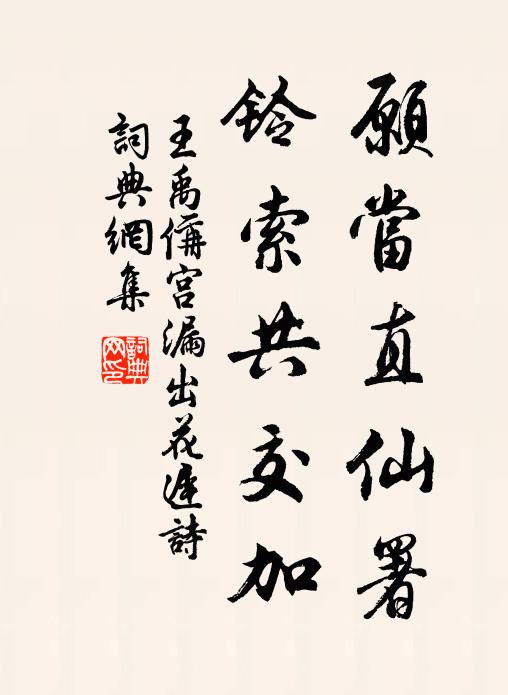 願當直仙署
鈴索共交加
王禹偁宮漏出花遲詩
詞典網集
詞典網印